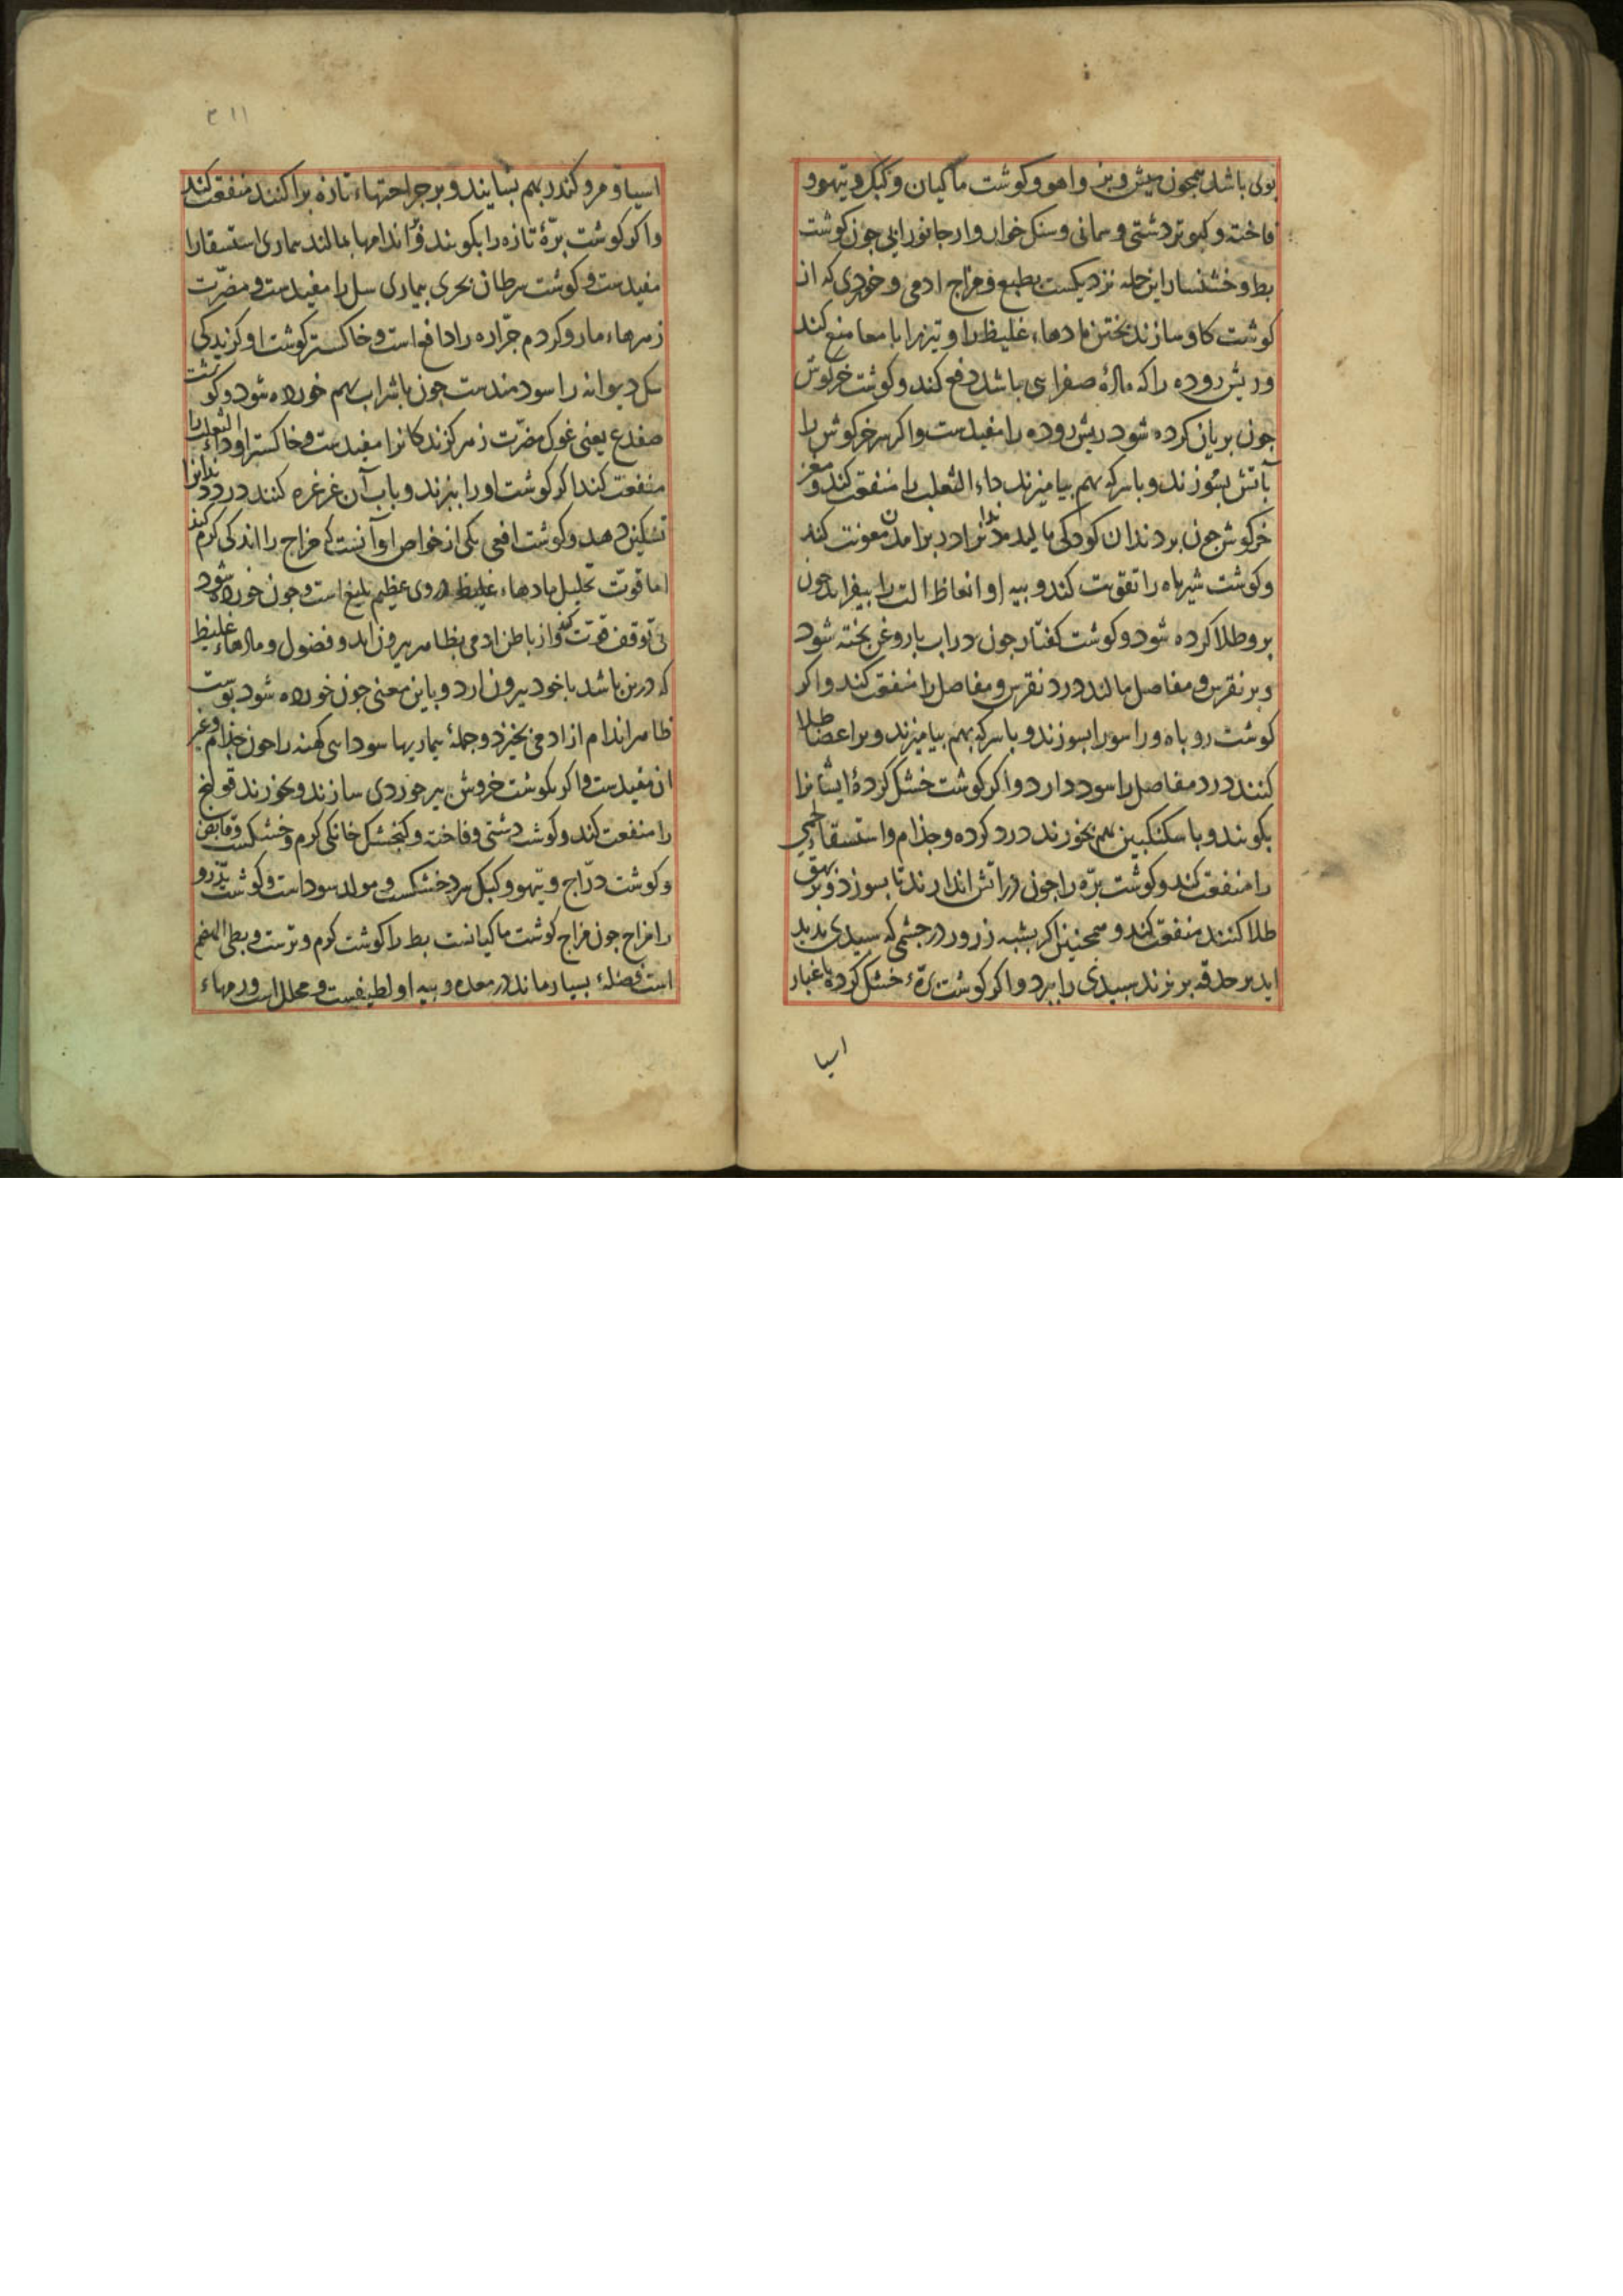 بولی باشد همجون میش و بز و اهو و کوشت ماکیان و کبک و تیهو و
فاخته و کبوتر دشتی و سمانی و سنک خوار و ار جانور ابی جون کوشت
بط و خشنسار این جمله نزدیکست بطبع و مزاج ادمی و خوردی که از
کوشت کاو سازند بختن مادهاء غلیظ را و تیزیرا با معا منع کند
و ریش روده را که مادهٔ صفرایی باشد دفع کند و کوشت خرکوش
جون بریان کرده شود ریش روده را مفیدست و اکر سر خرکوش را
بآتش بسوزند و با سرکه بهم بیامیزند داء الثعلب را منفعت کند و مغز
خرکوش جون بر دندان کودکی مالیده دندانرا در برامدن معونت کند
و کوشت شیر باه را تقویت کند و پیه او انعاظ الت را بیفزاید جون
برو طلا کرده شود و کوشت کفتار جون در اب با روغن بخته شود
و بر نقرس و مفاصل مالند درد نقرس و مفاصل را منفعت کند و اکر
کوشت روباه و راسو را بسوزند و با سرکه بهم بیامیزند و بر اعضا طلا
کنند درد مفاصل را سود دارد و اکر کوشت خشک کردهٔ ایشانرا
بکوبند و با سکنکبین بهم بخورند درد کرده و جذام و استسقاء لحمی
را منفعت کند و کوشت بره را جون در اتش اندازند تا بسوزد و بر بهق
طلا کنند منفعت کند و همجنین اکر بشبه زرور در جشمی که سپیدی بدید
اید بر حدقه بریزند سپیدی را ببرد و اکر کوشت برّهٔ خشک کرده با غبار
اسیا
۳۱۱
اسیا و مر و کندر بهم بسایند و بر جراحتهاء تازه براکنند منفعت کند
و اکر کوشت برّهٔ تازه را بکوبند و بر اندامها بمالند بیماری استسقا را
مفیدست و کوشت سرطان بحری بیماری سل را مفیدست و مضرّت
زهرهاء مار و کردم جرّاره را دافع است و خاکستر کوشت او کزیدکی
سک دیوانه را سودمندست جون با شراب بهم خورده شود و کوشت
صفدع یعنی غوک مضرّت زهر کزندکانرا مفیدست و خاکستر او داء الثعلب را
منفعت کند اکر کوشت او را ببزند و باب آن غرغره کنند درد دندانرا
تسکین دهد و کوشت افعی یکی از خواص او آنست که مزاج را اندکی کرم کند
اما قوّت تحلیل مادهاء غلیظ در وی عظیم بلیغ است و جون خورده شود
بی توقف قوّت کند و از باطن ادمی بظاهر بیرون اید و فضول و مادهاء غلیظ
که درین باشد با خود بیرون ارد و باین معنی جون خورده شود بوست
ظاهر اندام از ادمی بخیزد و جملهٔ بیماریها سودایی کهنه را جون جذام و غیر
ان مفیدست و اکر بکوشت خروش بیر خوردی سازند و بخورند قولنج
را منفعت کند و کوشت دشتی و فاخته و کنجشک خانکی کرم و خشکست و قابض
و کوشت درّاج و تیهو و کبک سرد خشکست و مولد سوداست و کوشت تذرو
را مزاج جون مزاج کوشت ماکیانست بط را کوشت کرم و ترست و بطی الهضم
است فضلهٔ بسیار ماند در معده و پیه او لطیفست و محلل است ورمهاء